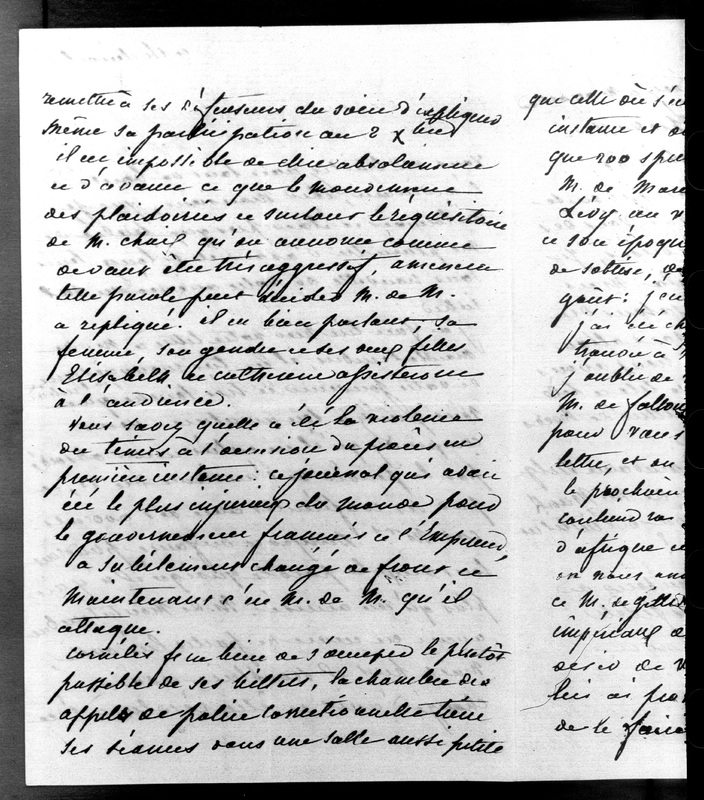 remettre à ses défenseurs du soin d'expliquer
même sa participation au 2 Xbre
il est impossible de dire absolument
et d'avance ce que le mouvement
des plaidoiries et surtout le réquisitoire
de M. Chaix qu'on annonce comme
devant être très aggressif, amenera
telle parole peut décider M. de M.
a repliqué. il est bien portant, sa
femme, son gendre et ses deux filles
Elisabeth et Catherine assisteront
à l'audience.
Vous savez quelle a été la violence
du times à l'occasion du procès en
première instance: ce journal qui avait
été le plus injurieux du monde pour
le gouvernement français et l'Empereur,
a subitement changé de front et
maintenant c'est M. de M. qu'il
attaque.
Cornélis fera bien de s'occuper le plutôt
possible de ses billets, la chambre des
appels de police correctionnelle tient
ses séances dans une salle aussi petite
que celle où s'est
instance et
que 200
M. de
Lévy au
et son époque
de sottise,
goût: j'en
j'ai été
trouvée à
j'oublie de
M. de Falloux
pour vous
lettre, et on
le prochain
contiendra
d'afrique et
on nous
et M. de
impériaux
désir de
lui ai
de le faire